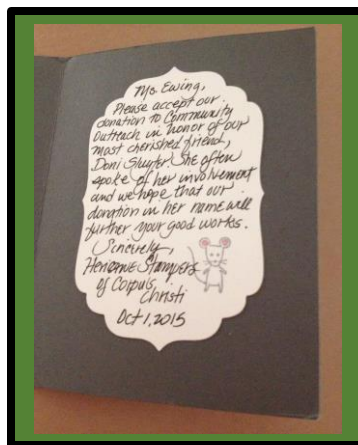 Ms. Ewing,
Please accept our
donation to Community
Outreach in honor of our
most cherished friend,
Doni Sluyter. She often
spoke of her involvement
and we hope that our
donation in her name will
further your good works.
Sincerely,
Stampers
of Corpus
Christi
Oct 1, 2015